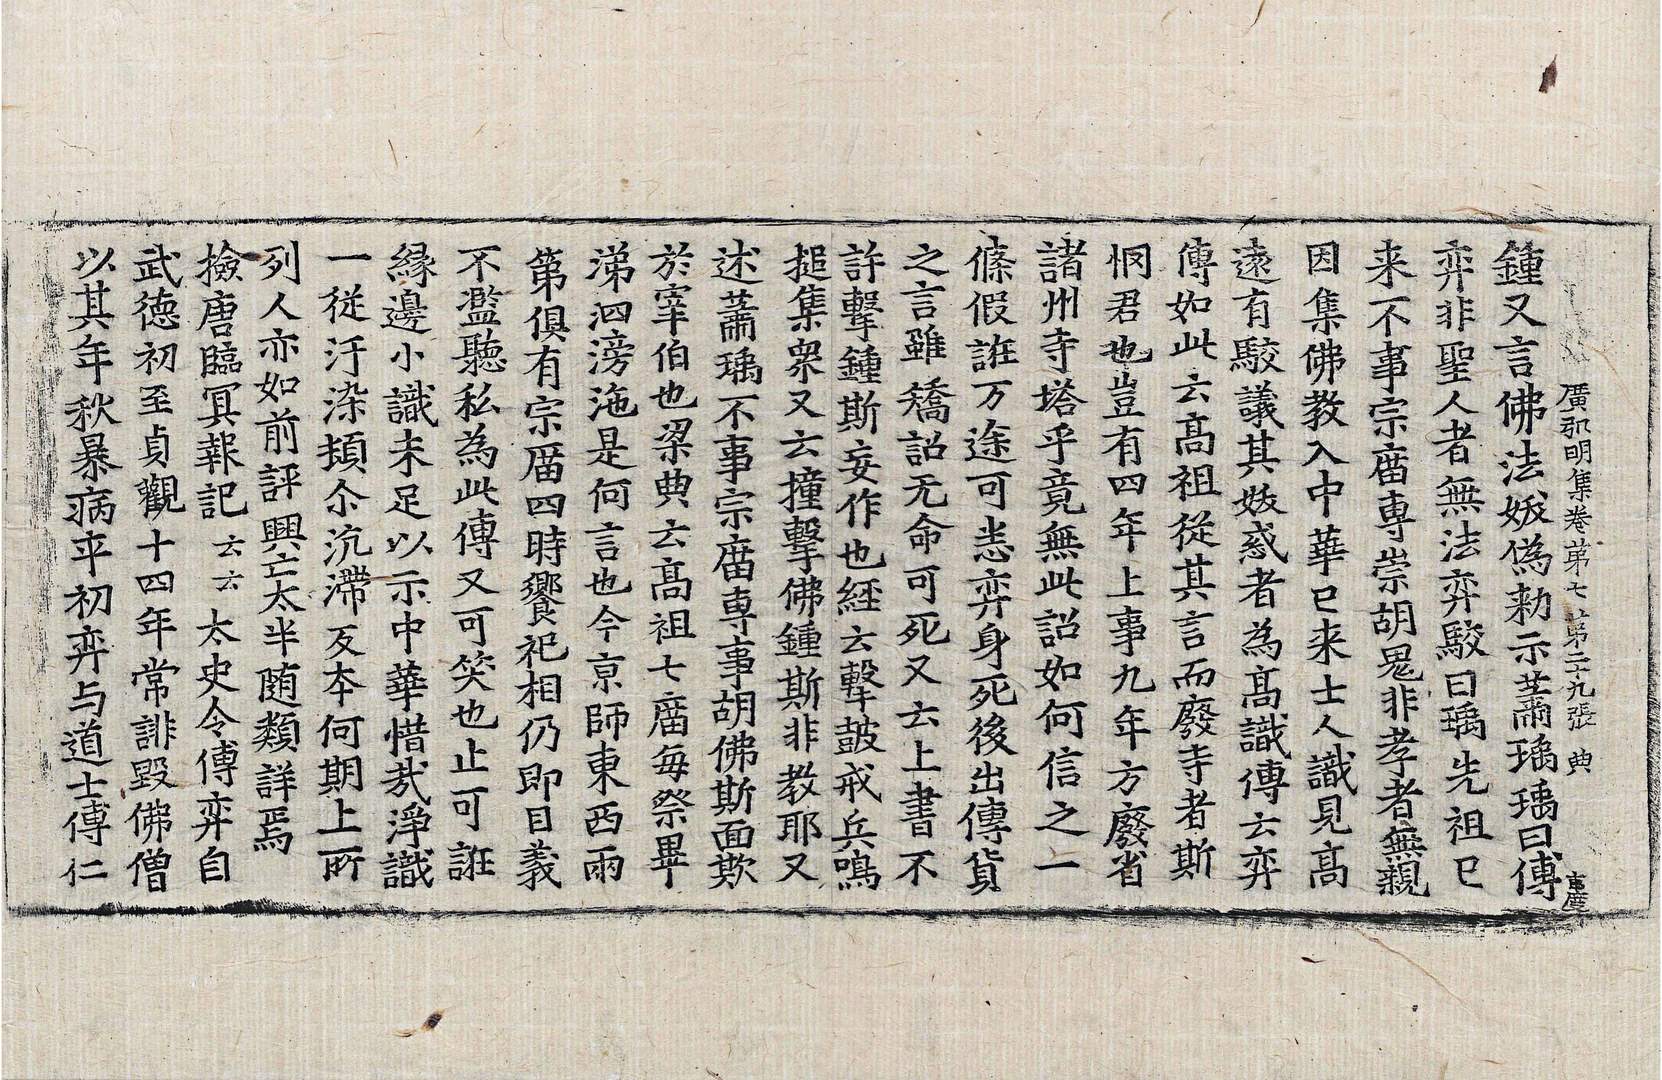 廣弘明集卷第七 第二十九張 典
鍾又言佛法妭偽勑示蕭瑀瑀曰傅
弈非聖人者無法弈駮曰瑀先祖已
来不事宗庿専崇胡鬼非孝者無親
因集佛教入中華已来士人識見髙
遠有駮議其妭惑者為髙識傳云弈
傳如此云髙祖從其言而廢寺者斯
㤏君也豈有四年上事九年方廢省
諸州寺塔乎竟無此詔如何信之一
條假誑万途可悉弈身死後出傳貨
之言雖矯詔无命可死又云上書不
許擊鍾斯妄作也經云擊皷戒兵鳴
搥集衆又云撞擊佛鍾斯非教耶又
述蕭瑀不事宗庿専事胡佛斯面欺
於宰伯也梁典云髙祖七庿毎祭畢
涕泗滂沲是何言也今京師東西兩
第俱有宗庿四時饗祀相仍即目義
不濫聽私為此傳又可笑也止可誑
緣邊小識未足以示中華惜㢤淨識
一從汙染頓尒沉滯反夲何期上所
列人亦如前評興亡太半随類詳焉
撿唐臨冥報記云云太史令傅弈自
武德初至貞觀十四年常誹毀佛僧
以其年秋暴病卒初弈与道士傅仁